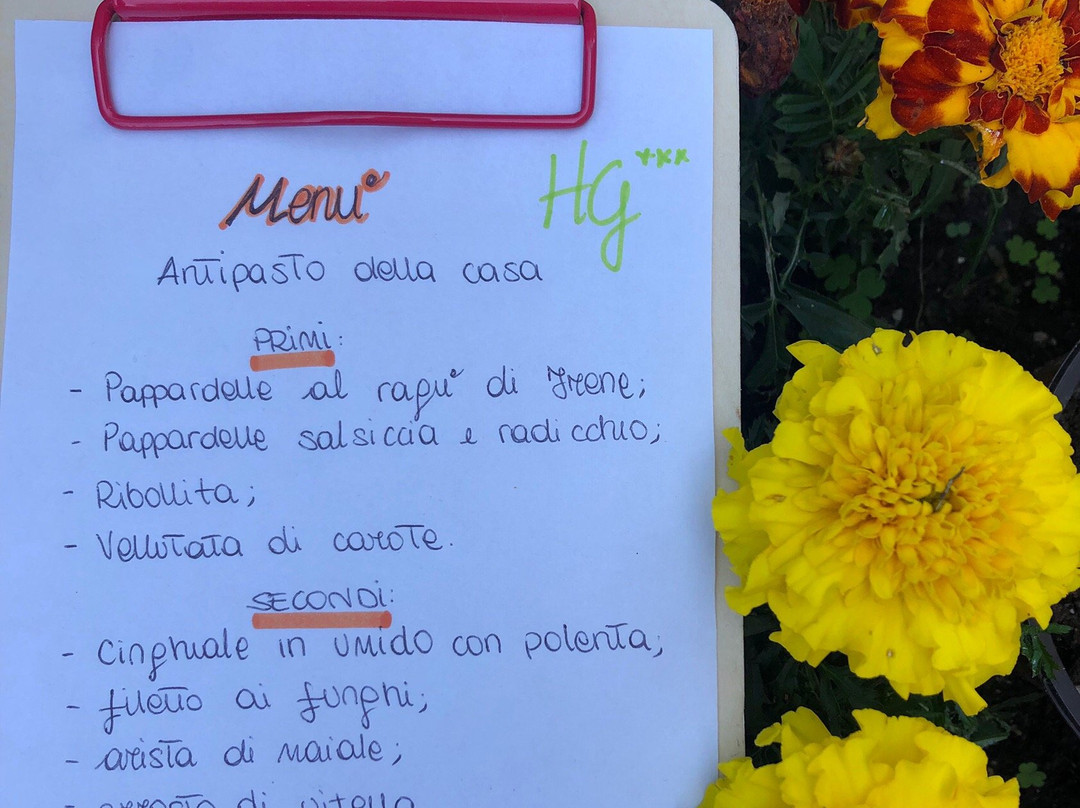 Menu°
HG***
Antipasto della casa
PRIMI:
- Pappardelle al ragu° di Irene;
- Pappardelle salsiccia e radicchio;
- Ribollita;
- Vellutata di carote.
SECONDI:
- Cinghiale in umido con polenta;
- filetto ai funghi;
- arista di maiale;
- arrosto di vitello